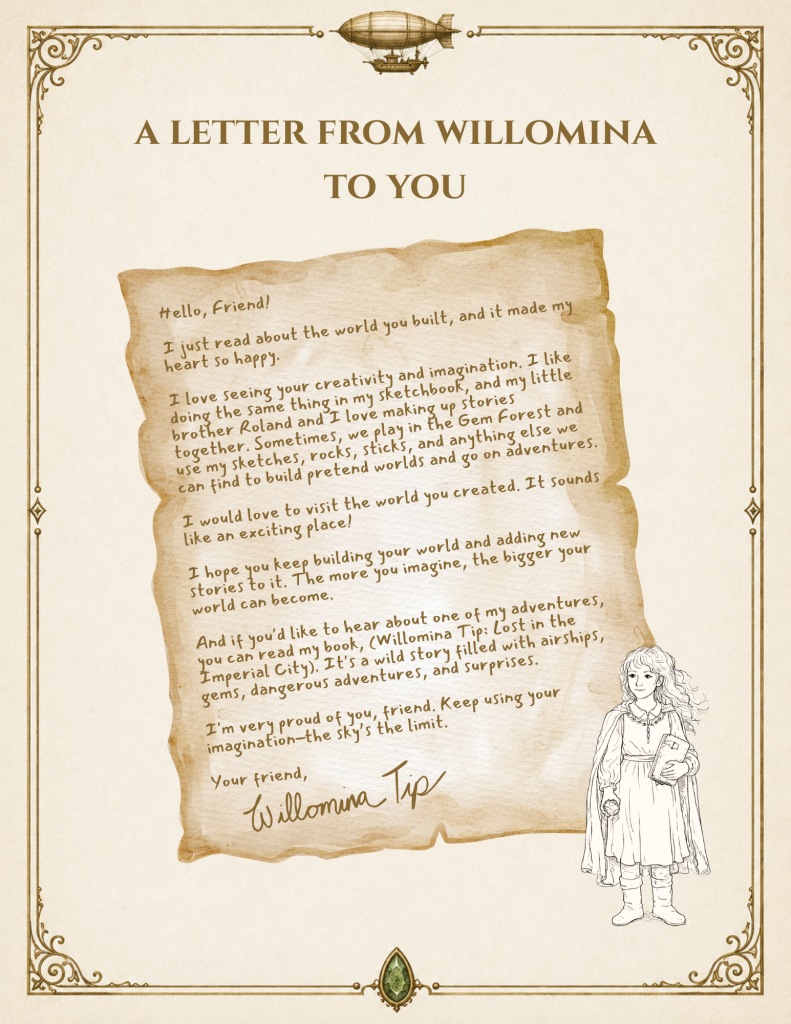 A LETTER FROM WILLOMINA
TO YOU
Hello, Friend!
I just read about the world you built, and it made my
heart so happy.
I love seeing your creativity and imagination. I like
doing the same thing in my sketchbook, and my little
brother Roland and I love making up stories
together. Sometimes, we play in the Gem Forest and
use my sketches, rocks, sticks, and anything else we
can find to build pretend worlds and go on adventures.
I would love to visit the world you created. It sounds
like an exciting place!
I hope you keep building your world and adding new
stories to it. The more you imagine, the bigger your
world can become.
And if you'd like to hear about one of my adventures,
you can read my book, (Willomina Tip: Lost in the
Imperial City). It's a wild story filled with airships,
gems, dangerous adventures, and surprises.
I'm very proud of you, friend. Keep using your
imagination—the sky's the limit.
Your friend,
Willomina Tip